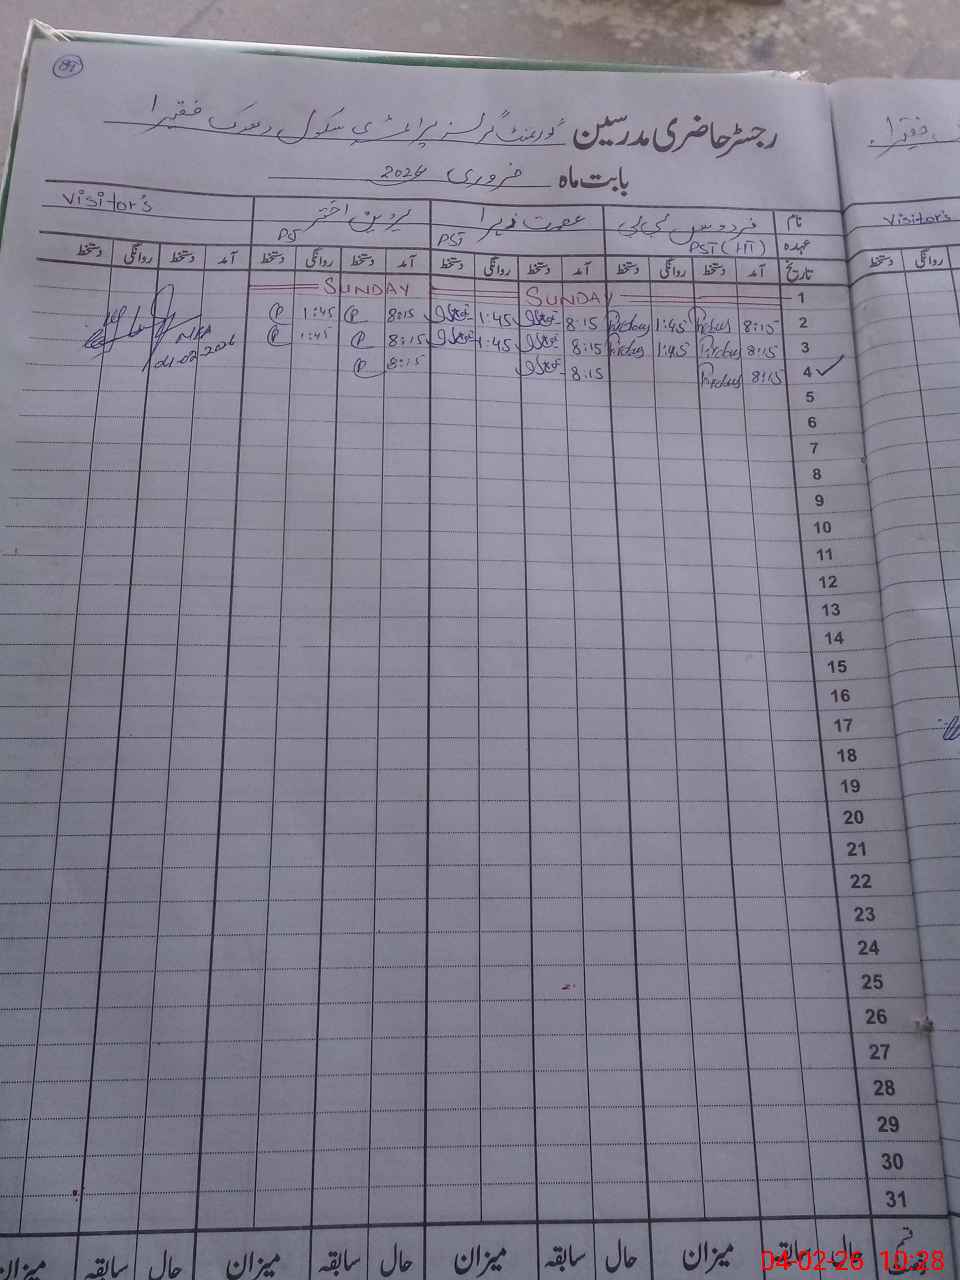 رجسٹر حاضری مدرسین گورنمنٹ گرلز پرائمری سکول ڈھوک فقیرا
بابت ماہ فروری 2026
نام فردوس بی بی عصمت پروین اختر Visitor's
عہدہ PST (HT) PST PST
تاریخ آمد دستخط روانگی دستخط آمد دستخط روانگی دستخط آمد دستخط روانگی دستخط آمد دستخط روانگی دستخط
1 SUNDAY SUNDAY
2 8:15 Firdous 1:45 Firdous 8:15 1:45 8:15 P 1:45 P
3 8:15 Firdous 1:45 Firdous 8:15 1:45 8:15 P 1:45 P
4 8:15 Firdous 8:15 8:15 P
MEA
04-02-2026
5
6
7
8
9
10
11
12
13
14
15
16
17
18
19
20
21
22
23
24
25
26
27
28
29
30
31
قسم حال سابقہ میزان حال سابقہ میزان حال سابقہ میزان حال سابقہ میزان
Visitor's
دستخط روانگی
04-02-26 10:28